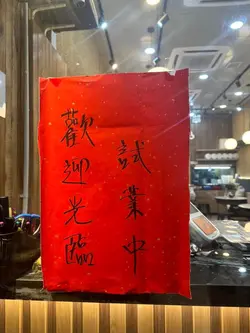 試業中
歡迎光臨